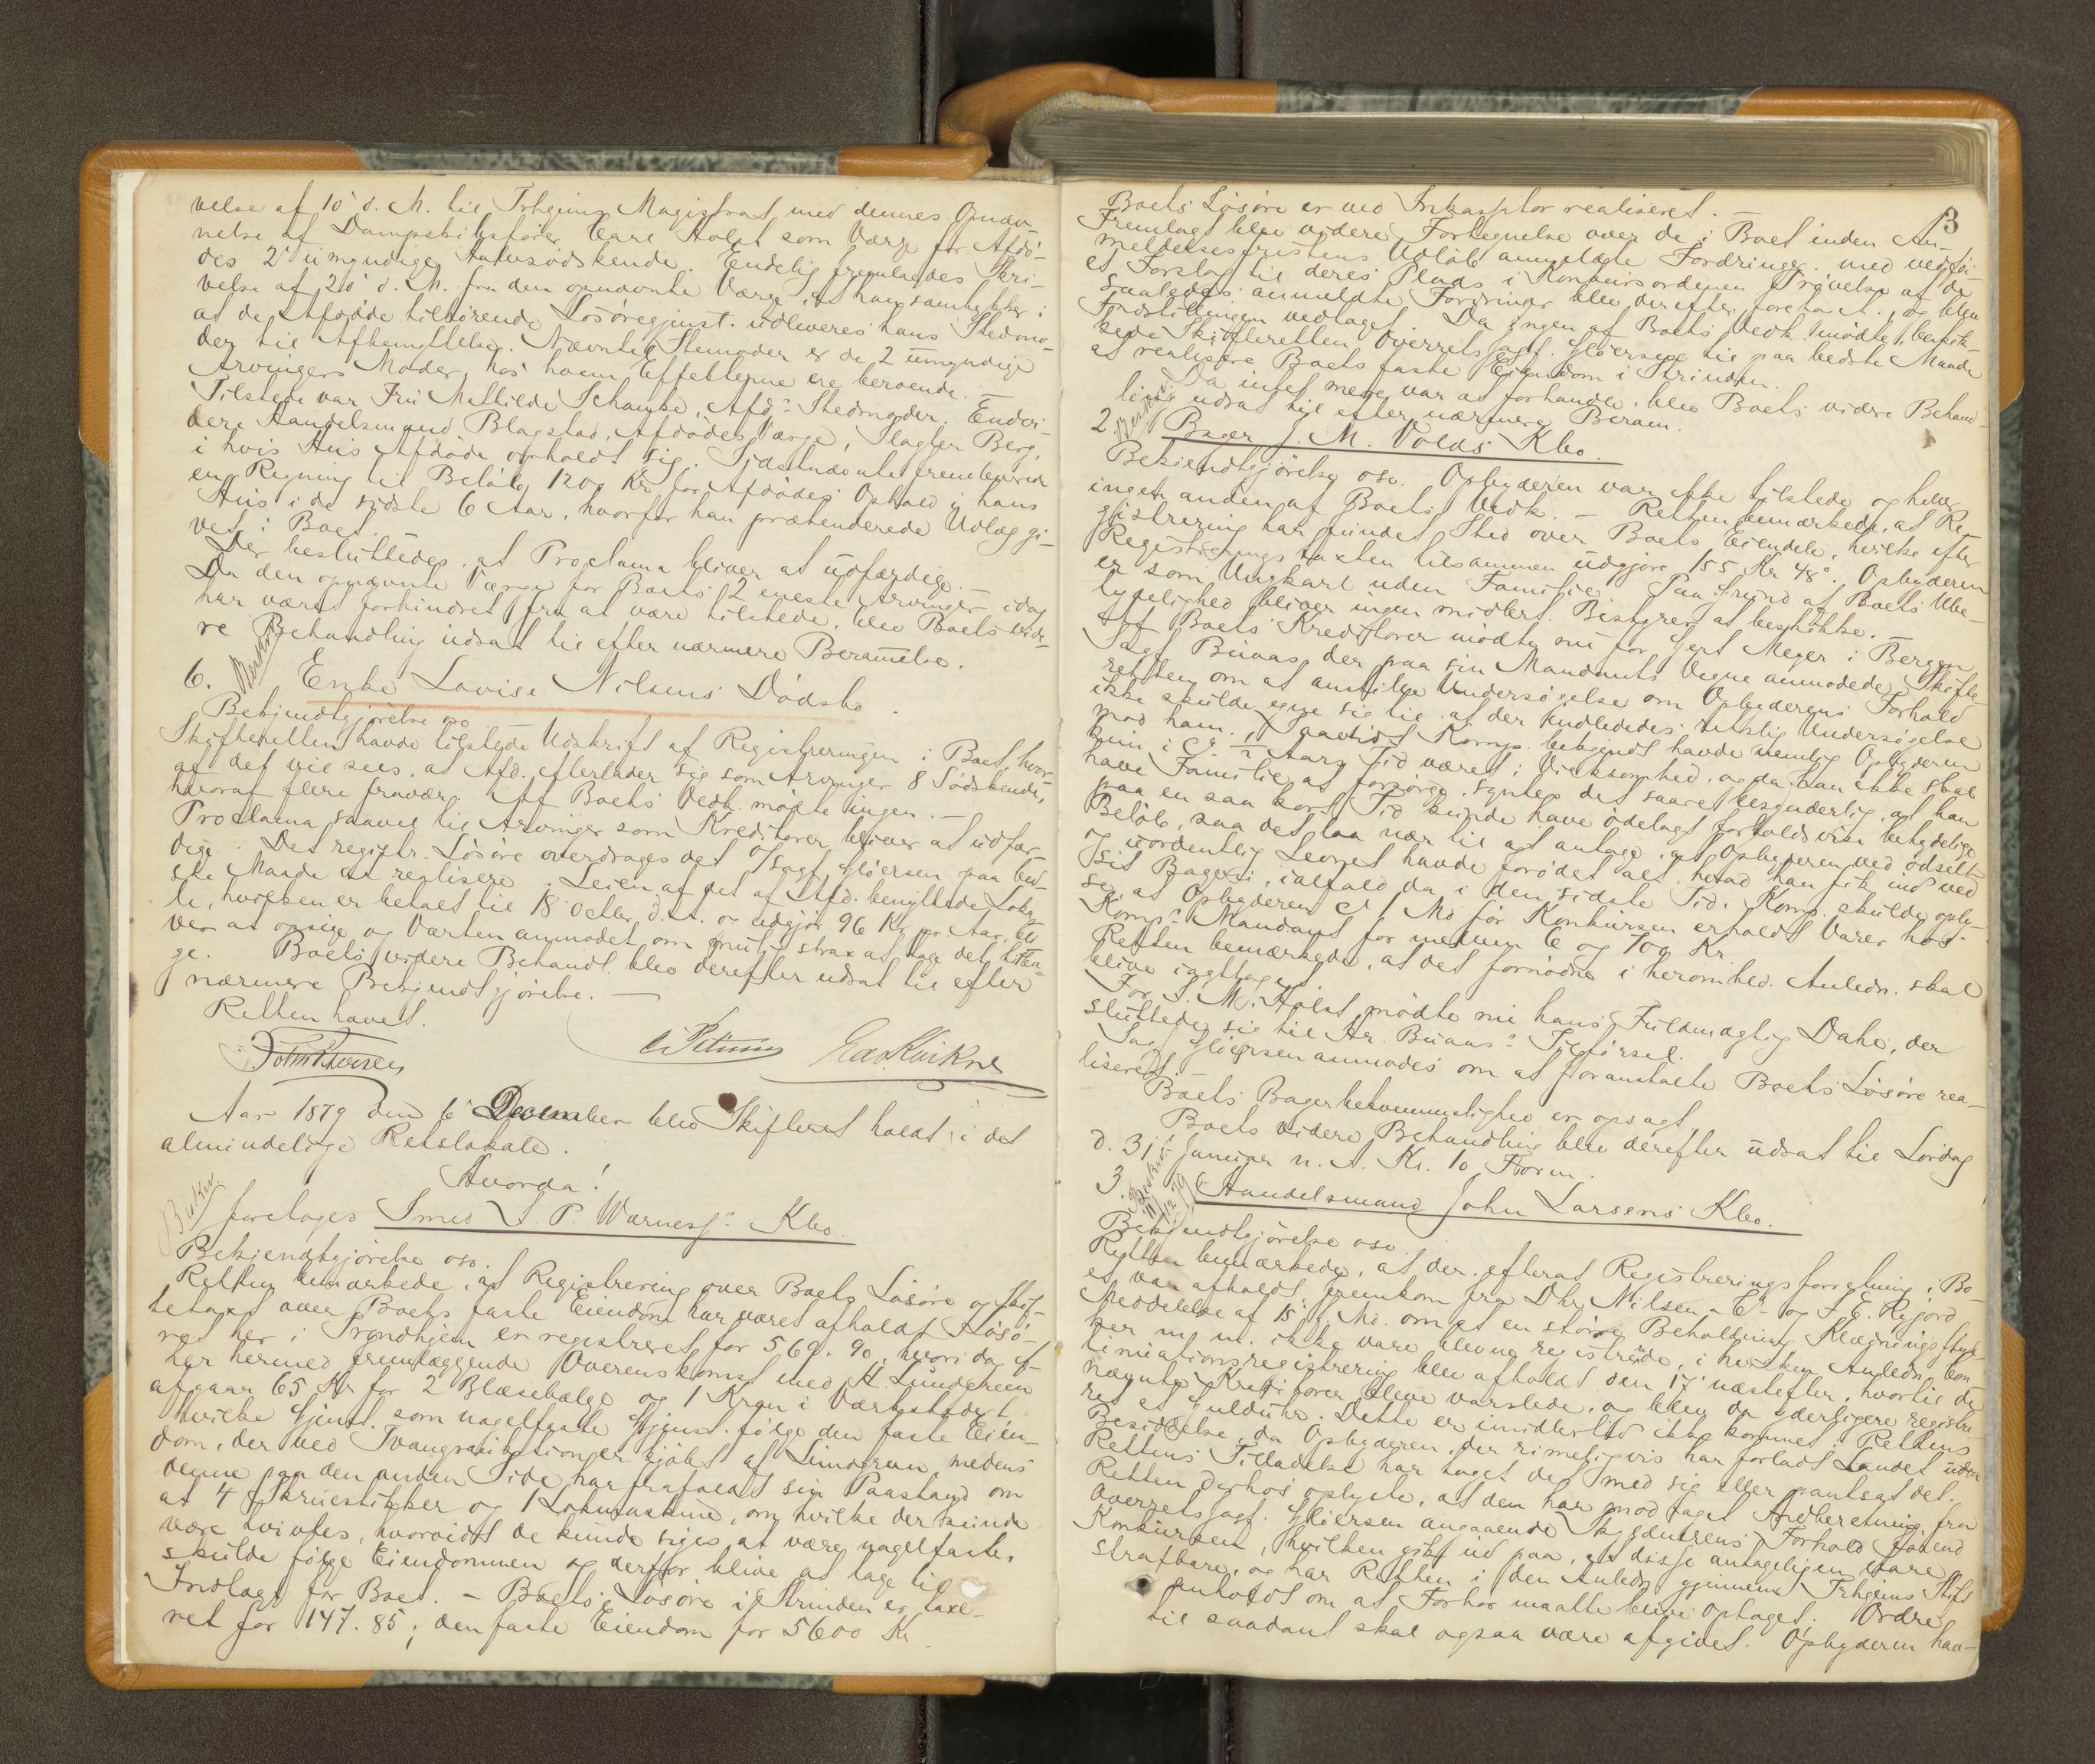 velse af 10' d. M. til Trhjems Magistrat med dennes Opnæv-
nelse af Dampskibsfører Carl Holst som Værge for Afdø-
des 2 umyndige Halvsødskende. Endelig fremlagdes Skri-
velse af 20' d. M. fra den opnævnte Værge, at han samtykker i
at de Afdøde tilhørende Løsøregjenst. udleveres hans Stedmo-
der til Afbenyttelse. Nævnte Stemoder er de 2 umyndige
Arvingers Moder, hos hvem Effekterne ere beroende. –
Tilstede var Fru Mathilde Schanke, Afd.s Stedmoder. Ender-
dere Handelsmand Blagstad, Afdødes Værge, Slagter Berg,
i hvis Hus Afdøde opholdt sig. Sidstnævnte fremleverede
en Regning til Beløb 1200 Kr for Afdødes Ophold i hans
Hus i de sidste 6 Aar, hvorfor han prætenderede Udlæg gi-
vet i Boet.
Der besluttedes, at Proclama bliver at udfærdige. –
Da den opnævnte Værge for Boets 2 eneste Arvinger idag
har været forhindret fra at være tilstede, blev Boets vide-
re Behandling udsat til efter nærmere Berammelse.
6. Beskr. Enke Lovise Nilsens Dødsbo.
Bekjendtgjørelse osv.
Skifteretten havde tilstede Udskrift af Registreringen i Boet, hvor-
af det vil sees, at Afd. efterlader sig som Arvinger 8 Sødskende,
hvoraf flere fravær. Af Boets Vedk. mødte ingen. –
Proclama saavel til Arvinger som Kreditorer bliver at udfær-
dige. Det registr. Løsøre overdrages det O/sagf. Gløersen paa bed-
ste Maade at realisere. Leien af det af Afd. benyttede Loka-
le, hvilken er betalt til 18 Octbr. d. A. og udgjør 96 Kr pr Aar, bli-
ver at opsige og Værten anmodet om muli strax at tage det tilba-
ge. Boets videre Behandl. blev derefter udsat til efter
nærmere Bekjendtgjørelse. –
Retten hævet.
Aar 1879 den 6' December blev Skifteret holdt i det
almindelige Retslokale.
Hvorda!
Beskr. foretages Smed I. P. Warnes's Kbo.
Bekjendtgjørelse osv.
Retten bemærkede, at Registrering over Boets Løsøre og Skif-
tetaxt over Boets faste Eiendom har været afholdt. Løsø-
ret her i Trondhjem er registreret for 569.90, hvori dog ef-
ter hermed fremlæggende Overenskomst med H. Lundgreen
afgaar 65 Kr for 2 Blæsebælge og 1 Kran i Værkstedet
hvilke Gjenst. som nagelfaste Gjenst. følge den faste Eien-
dom, der ved Tvangsauktion er kjøbt af Lundgreen, medens
denne paa den anden Side har frafaldt sin Paastand om
at 4 Skruestikker og 1 Lokmaskine, om hvilke der kunde
være tvivles, hvorvidt de kunde siges at være nagelfaste,
skulde følge Eiendommen og derfor blive at tage til
Indtægt for Boet. – Boets Løsøre i Strinden er taxe-
ret for 147.85; den faste Eiendom for 5600 Kr
3
Boets Løsøre er ved Inkassator realiseret. –
Fremlagt blev videre Fortegnelse over de i Boet inden An-
meldelsesfristens Udløb anmeldte Fordringer, med vedføi-
et Forslag til deres Plads i Konkursordenen. Prøvelse af de
saaledes anmeldte Fordringer blev derefter foretaget, og blev
Indstillingen vedtaget. Da ingen af Boets Vedk. mødte, beskik-
kede Skifteretten Overretssagf. Gløersen til paa bedste Maade
at realisere Boets faste Eiendom i Strinden.
Da intet mere var at forhandle, blev Boets videre Behand-
ling udsat til efter nærmere Beram.
2. Beskr. Bager J. M. Volds Kbo.
Bekjendtgjørelse osv. Opbyderen var ikke tilstede og heller
ingen anden af Boets Vedk. – Retten bemærkede, at Re-
gistrering har fundet Sted over Boets Eiendele, hvilke efter
Registreringstaxten tilsammen udgjøre 155 Kr 48 ø. Opbyderen
er som Ungkarl uden Familie. Paa Grund af Boets Ube-
tydelighed bliver ingen midlert. Bestyrer at beskikke. –
Af Boets Kreditorer mødte nu for Gert Meyer i Bergen
Sagf. Buaas, der paa sin Mandants Vegne anmodede Skifte-
retten om at anstille Undersøgelse om Opbyderens Forhold
ikke skulde egne sig til, at der indlededes retslig Undersøgelse
mod ham. Saavidt Komp. bekjendt havde nemlig Opbyderen
kun i ca ½ Aars Tid været i Virksomhed, og da han ikke skal
have Familie at forsørge, syntes det saare besynderlig, at han
paa en saa kort Tid kunde have ødelagt forholdsvis betydelige
Beløb, saa det laa nær til at antage, at Opbyderen ved ødselt
og uordentlig Levnet havde forødet alt, hvad han fik ind ved
sit Bageri, ialfald da i den sidste Tid. Komp. skulde oply-
se, at Opbyderen ca 1 Md før Konkursen erholdt Varer hos
Komp.s Mandant for mellem 6 og 700 Kr.
Retten bemærkede, at det fornødne i heromhld. Anledn. skal
blive iagttaget.
For I. M. Holst mødte nu hans Fuldmægtig Dahl, der
sluttede sig til Hr. Buaas's Tilførsel.
Sagf. Gløersen anmodes om at foranstalte Boets Løsøre rea-
liseret.
Boets Bagerbekvemmelighed er opsagt.
Boets videre Behandling blev derefter udsat til Lørdag
d. 31 Januar n. A. Kl. 10 Form.
3. Beskr. 11/12 79 Handelsmand John Larsens Kbo.
Bekjendtgjørelse osv.
Retten bemærkede, at der, efterat Registreringsforretning i Bo-
et var afholdt, fremkom fra Dhr. Nilsen & Co og F. E. Rygord
Meddelelse af 15 f. Md. om at en større Beholdning Klædningsstyk-
ker m. m. ikke vare blevne registrerede, i hvilken Anledn. Con-
tinuationsregistrering blev afholdt den 17' næstefter, hvortil de
nævnte Kreditorer bleve varslede, og blev da yderligere registre-
ret et Gulduhr. Dette er imidlertid ikke kommet i Rettens
Besiddelse, da Opbyderen, der rimeligvis har forladt Landet uden
Rettens Tilladelse har taget det med sig eller pantsat det.
Retten derhos oplyste, at den har modtaget Indberetning fra
Overretssagf. Gløersen angaaende Skyldnerens Forhold forend
Konkursen, hvilken gik ud paa, at disse antageligen vare
strafbare, og har Retten i den Anledn. gjennem Trhjems Stift
anholdt om at Forhør maatte blive optaget; Ordre
til saadant skal ogsaa være afgivet. Opbyderen hav-